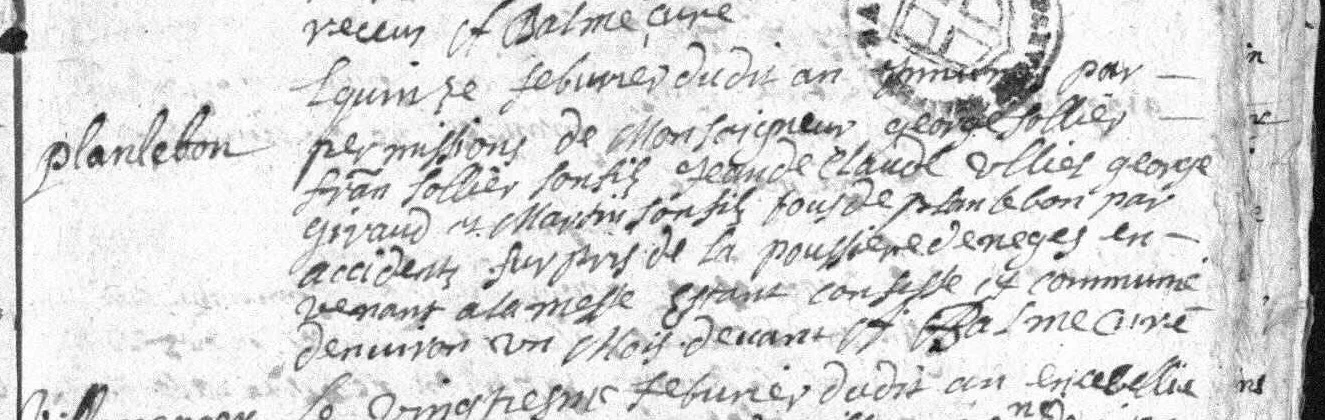 receus J Balme curé
Lquinze feburier dudit an par
planlebon
permissions de Monseigneur george follier
fran follier sonfilz Jeande Claude ollier george
giraud et Martin sonfilz tousde planlebon par
accidentz surpris de la poussiere deneges en
venant alamesse estant confesse et communié
denuiron vn Mois deuant J Balme curé
le vingtiesme feburier dudit an